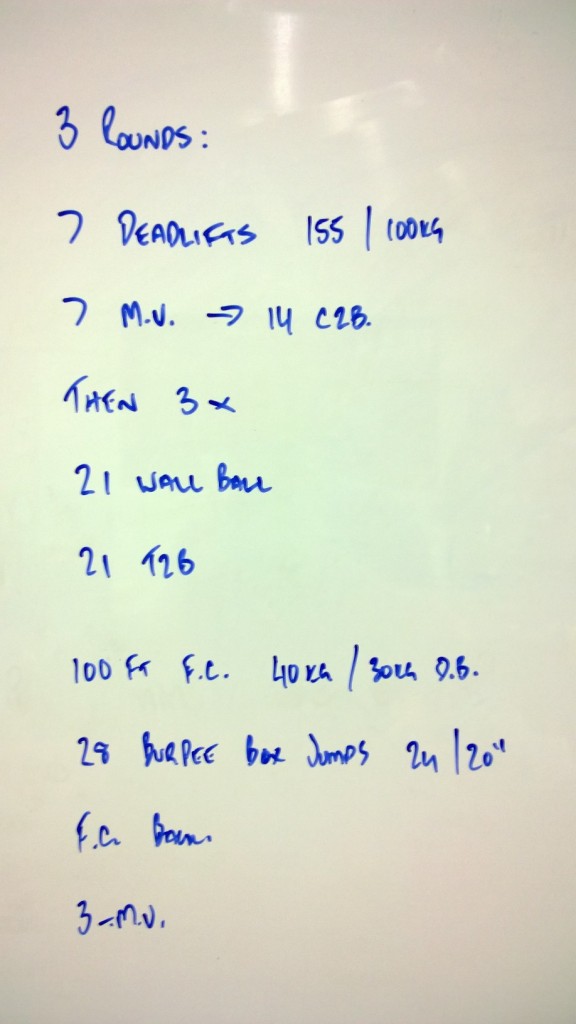 3 ROUNDS:
7 DEADLIFTS 155 | 100KG
7 M.U. → 14 C2B.
THEN 3 x
21 WALL BALL
21 T2B
100 FT F.C. 40KG / 30KG D.B.
28 BURPEE Box JUMPS 24 | 20"
F.C. BACK.
3 - M.U.